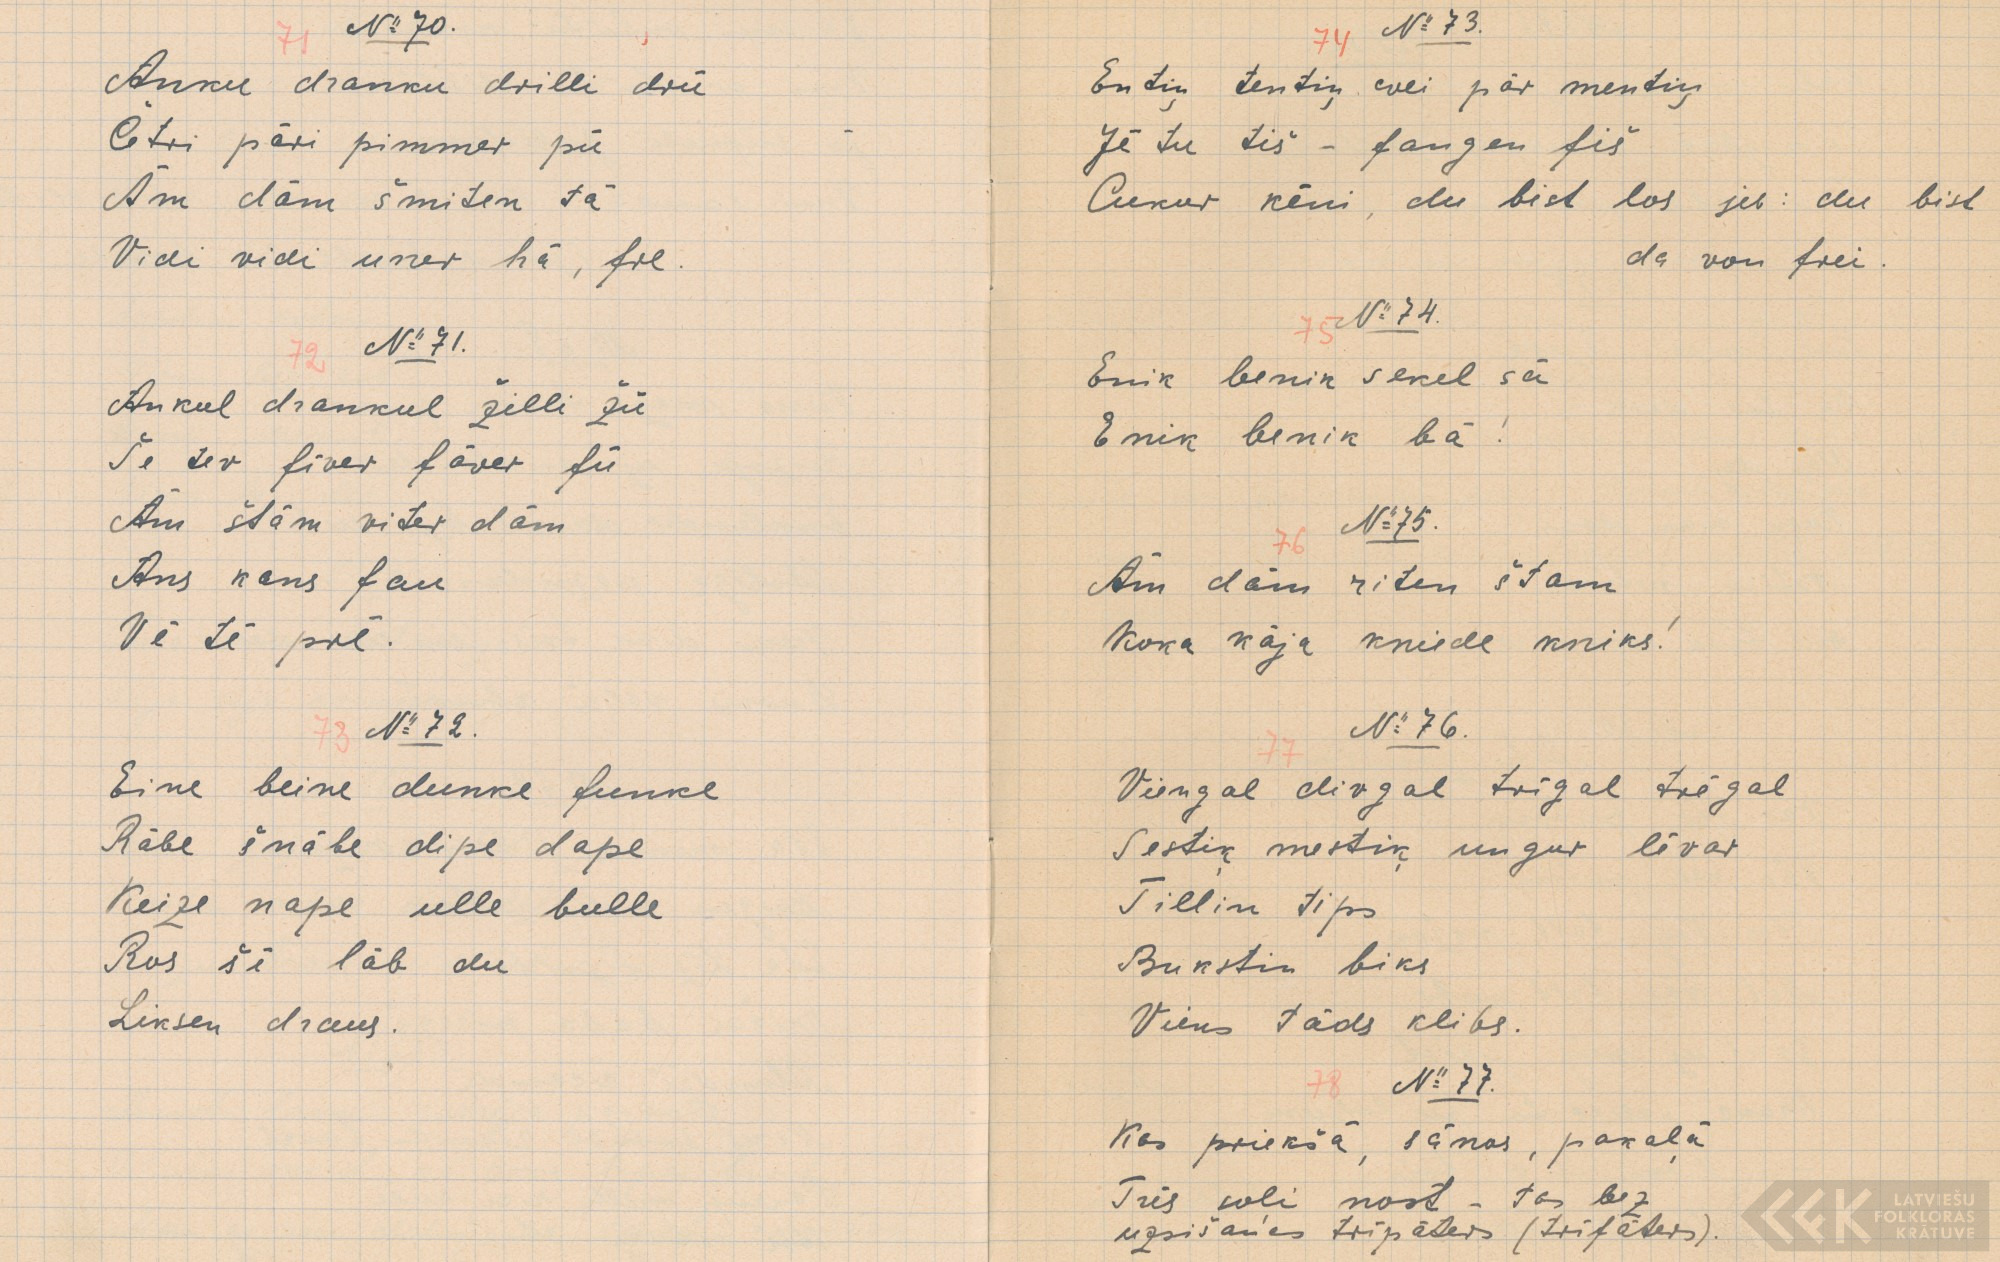 71 № 70.
Anku dranku drilli drū
Cētri pāri pimmer pū
Ām dām šmiten tā
Vidi vidi uner hā, fre.
72 № 71.
Ankul drankul žilli žū
Še tev fiver fāver fū
Ām štām viter dām
Ans kans fau
Vē tē prē.
73 № 72.
Eine beine dunke funke
Rābe šnābe dipe dape
Keize nape ulle bulle
Ros šē lāb du
Liksen draus.
74 № 73.
Entiņ tentiņ cvei pār mentiņ
Jē tu tiš - fangen fiš
Cukur kēni, du bist los jeb: du bist
da von frei.
75 № 74.
Enik benik sekel sā
Enik benik bā!
76 № 75.
Ām dām riten štam
Koka kāja kniede kniks!
77 № 76.
Viengal divgal trīgal trēgal
Sestiķ mestiķ ungur lēvar
Tillin tips
Bukstin biks
Viens tāds klibs.
78 № 77.
Kas priekšā, sānos, pakaļā
Trīs soļi nost - tas bez
uzsišanās trīpāters (trīfāters).
LATVIEŠU
FOLKLORAS
KRĀTUVE